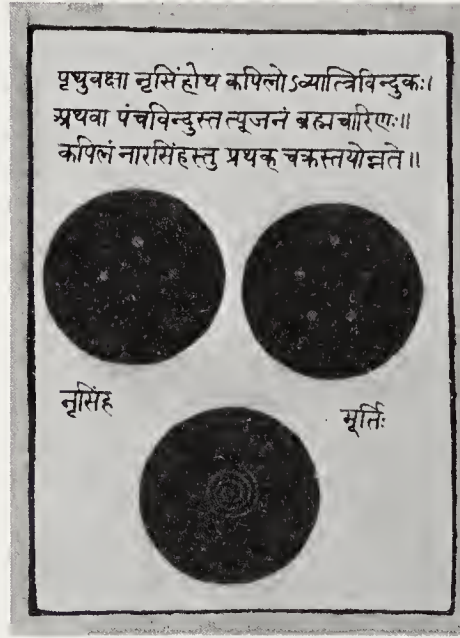 पृथुवक्षा नृसिंहोथ कपिलोऽव्यात्त्रिविन्दुकः।
अथवा पंचविन्दुस्तत्पूजनं ब्रह्मचारिणः॥
कपिलं नारसिंहस्तु प्रथक् चक्रस्तयोन्नते॥
नृसिंह
मूर्तिः